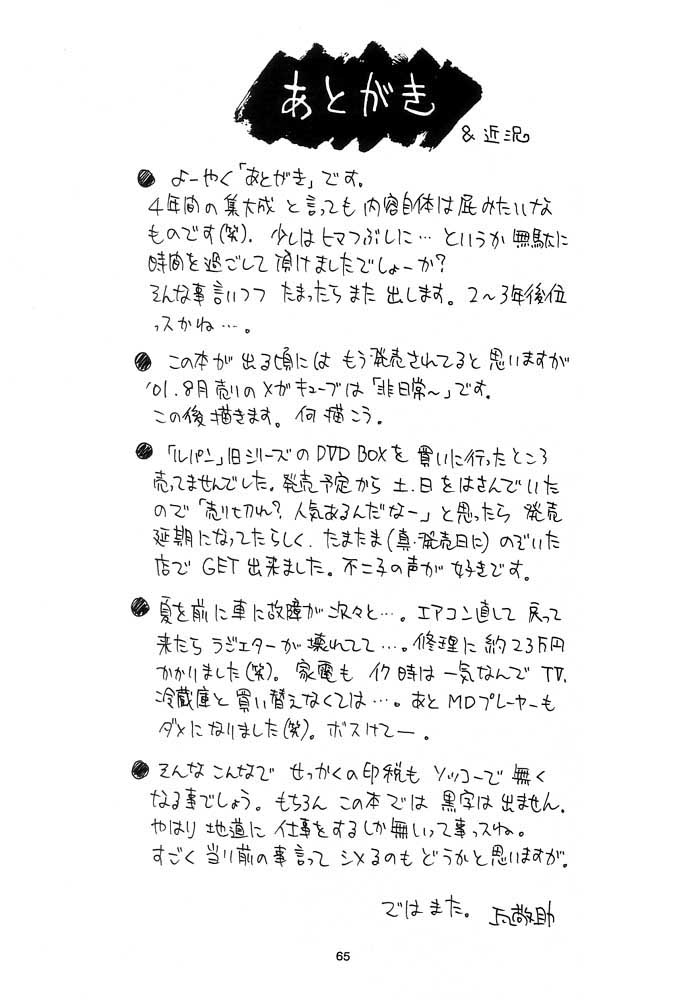 あとがき
&近況
● よーやく「あとがき」です。
4年間の集大成と言っても内容自体は屁みたいな
ものです(笑)。少しはヒマつぶしに…というか無駄に
時間を過ごして頂けましたでしょーか?
そんな事言いつつたまったらまた出します。2〜3年後位
っスかね…。
● この本が出る頃にはもう発売されてると思いますが
'01.8月売りのメガキューブは「非日常〜」です。
この後描きます。何描こう。
● 「ルパン」旧シリーズのDVD BOXを買いに行ったところ
売ってませんでした。発売予定から土、日をはさんでいた
ので「売り切れ?人気あるんだなー」と思ったら発売
延期になってたらしく、たまたま(真・発売日に)のぞいた
店でGET出来ました。不二子の声が好きです。
● 夏を前に車に故障が次々と…。エアコン直して戻って
来たらラジエターが壊れてて…。修理に約23万円
かかりました(笑)。家電もイク時は一気なんでTV、
冷蔵庫と買い替えなくては…。あとMDプレーヤーも
ダメになりました(笑)。ボスけてー。
● そんなこんなでせっかくの印税もソッコーで無く
なる事でしょう。もちろんこの本では黒字は出ません。
やはり地道に仕事をするしか無いって事っスね。
すごく当り前の事言ってシメるのもどうかと思いますが。
ではまた。 敬助
65